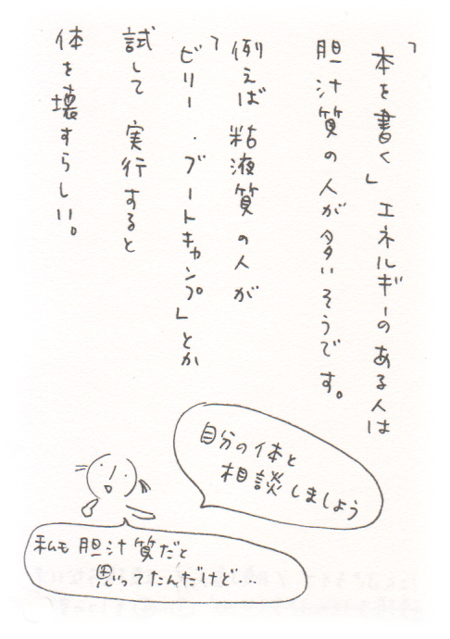 「本を書く」エネルギーのある人は
胆汁質の人が多いそうです。
例えば粘液質の人が
「ビリー・ブートキャンプ」とか
試して実行すると
体を壊すらしい。
自分の体と
相談しましょう
私も胆汁質だと
思ってたんだけど…